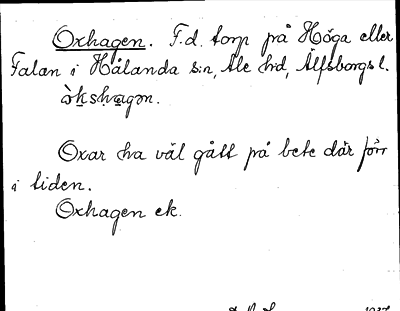 Oxhagen. F.d. torp på Höga eller
Falan i Hålanda sn, Ale hd, Älfsborgs l.
òk̲sha̲gən.
Oxar ha väl gått på bete där förr
i tiden.
Oxhagen ek.